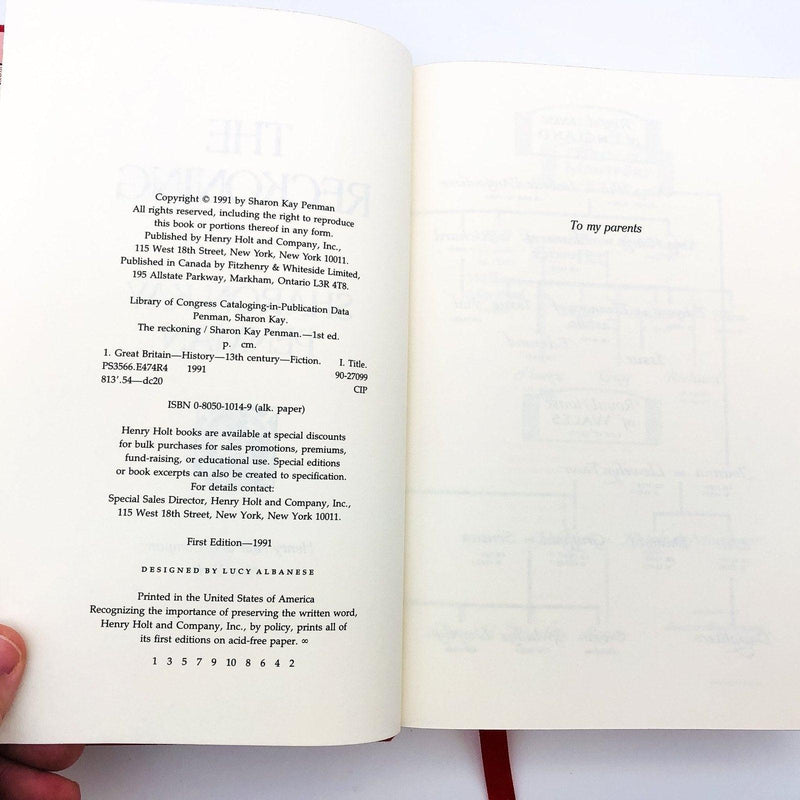 Copyright © 1991 by Sharon Kay Penman
All rights reserved, including the right to reproduce
this book or portions thereof in any form.
Published by Henry Holt and Company, Inc.,
115 West 18th Street, New York, New York 10011.
Published in Canada by Fitzhenry & Whiteside Limited,
195 Allstate Parkway, Markham, Ontario L3R 4T8.
Library of Congress Cataloging-in-Publication Data
Penman, Sharon Kay.
The reckoning / Sharon Kay Penman.—1st ed.
p. cm.
1. Great Britain—History—13th century—Fiction. I. Title.
PS3566.E474R4 1991 90-27099
813'.54—dc20 CIP
ISBN 0-8050-1014-9 (alk. paper)
Henry Holt books are available at special discounts
for bulk purchases for sales promotions, premiums,
fund-raising, or educational use. Special editions
or book excerpts can also be created to specification.
For details contact:
Special Sales Director, Henry Holt and Company, Inc.,
115 West 18th Street, New York, New York 10011.
First Edition—1991
DESIGNED BY LUCY ALBANESE
Printed in the United States of America
Recognizing the importance of preserving the written word,
Henry Holt and Company, Inc., by policy, prints all of
its first editions on acid-free paper. ∞
1 3 5 7 9 10 8 6 4 2
To my parents